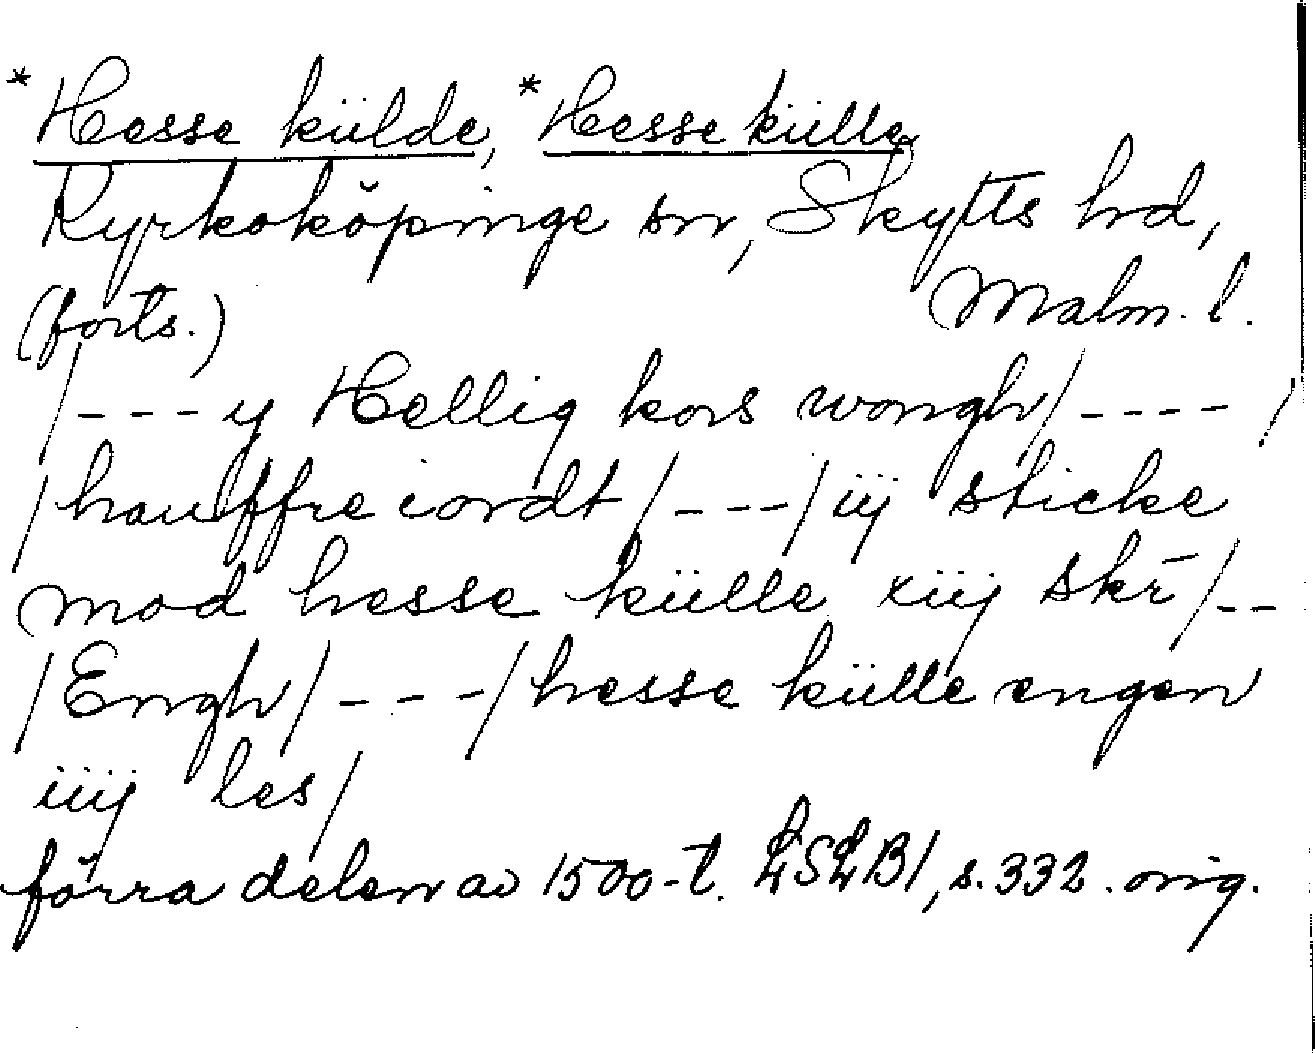 *Hesse külde, *Hesse külle
Kyrkoköpinge sn, Skytts hd,
(forts.) Malm. l.
/---y Hellig kors wongh/----/
/hauffre iordt/---/iij sticke
mod hesse külle xiij skr̄/--
/Engh/---/hesse külle engen
iiij les/
förra delen av 1500-t. LSLB1, s. 332. orig.